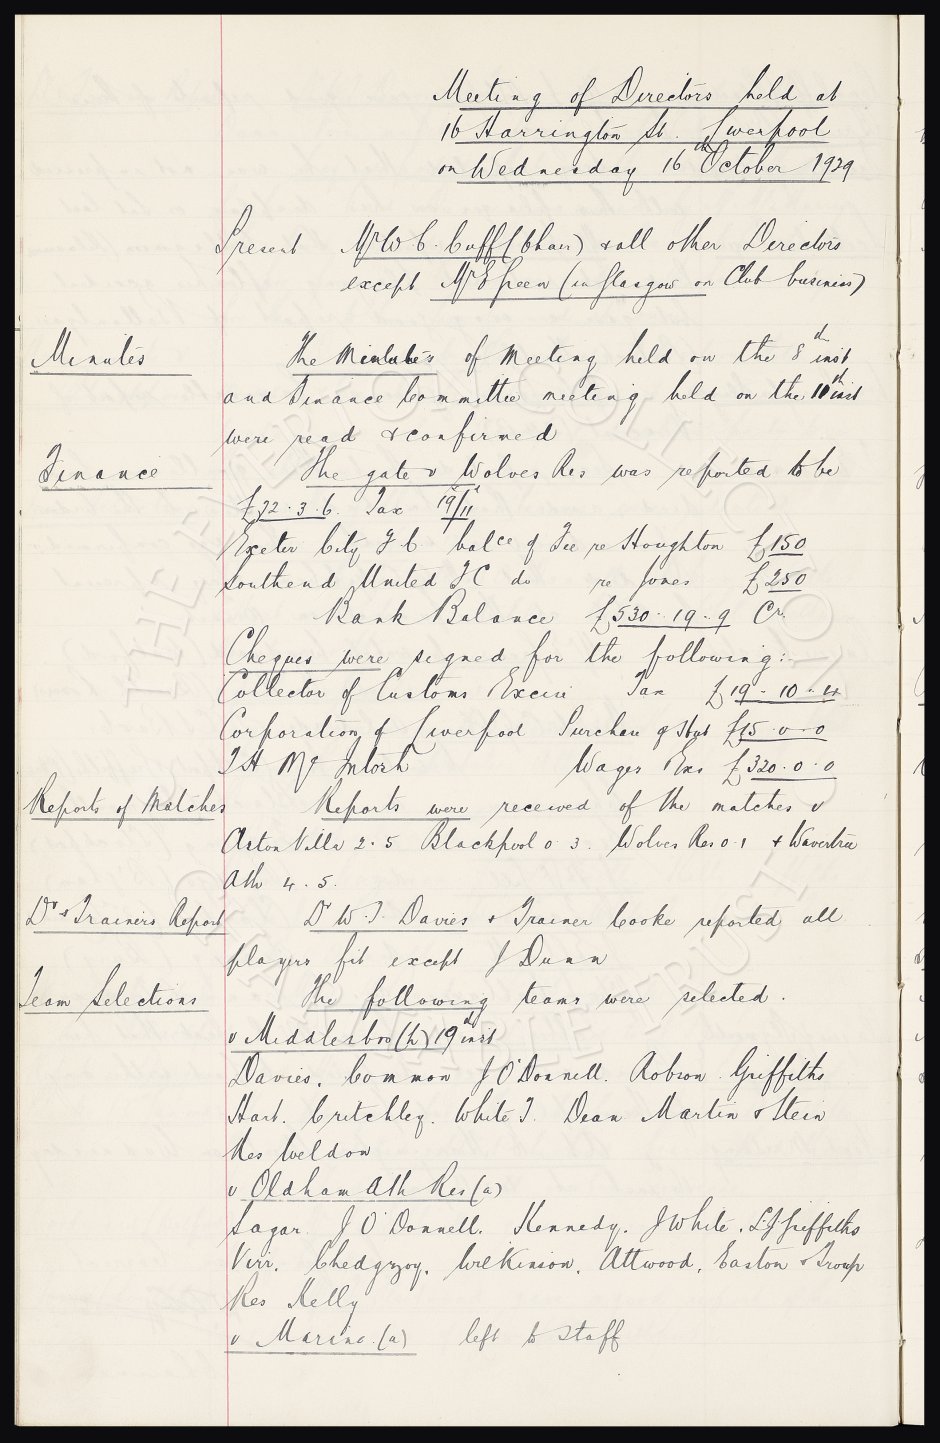 Meeting of Directors held at
16 Harrington St. Liverpool
on Wednesday 16th October 1929
Present Mr W C. Cuff (Chair) & all other Directors
except Mr E Green (in Glasgow on Club business)
Minutes The Minutes of Meeting held on the 8th inst
and Finance Committee meeting held on the 10th inst
were read & confirmed
Finance The gate v Wolves Res was reported to be
£32.3.6. Tax 19/11
Exeter City F C balce of Fee re Houghton £150
Southend United F C do re Jones £250
Bank Balance £530.19.9 Cr.
Cheques were signed for the following:-
Collector of Customs Excise Tax £19-10-4
Corporation of Liverpool Purchase of Hut £15-0-0
T H Mc Intosh Wages Exs £320.0.0
Reports of Matches Reports were received of the matches v
Aston Villa 2.5 Blackpool 0.3. Wolves Res 0.1 & Wavertree
Ath 4.5.
Dr & Trainers Report Dr W.J. Davies & Trainer Cooke reported all
players fit except J Dunn
Team Selections The following teams were selected.
v Middlesbro (h) 19th inst
Davies. Common J O'Donnell. Robson. Griffiths
Hart. Critchley. White T. Dean Martin & Stein
Res Weldon
v Oldham Ath Res (a)
Sagar. J O'Donnell. Kennedy. J White. T.J. Griffiths
Virr. Chedgzoy. Wilkinson. Attwood. Easton & Troup
Res Kelly
v Marine (a) left to staff
THE EVERTON COLLECTION
CHARITABLE TRUST